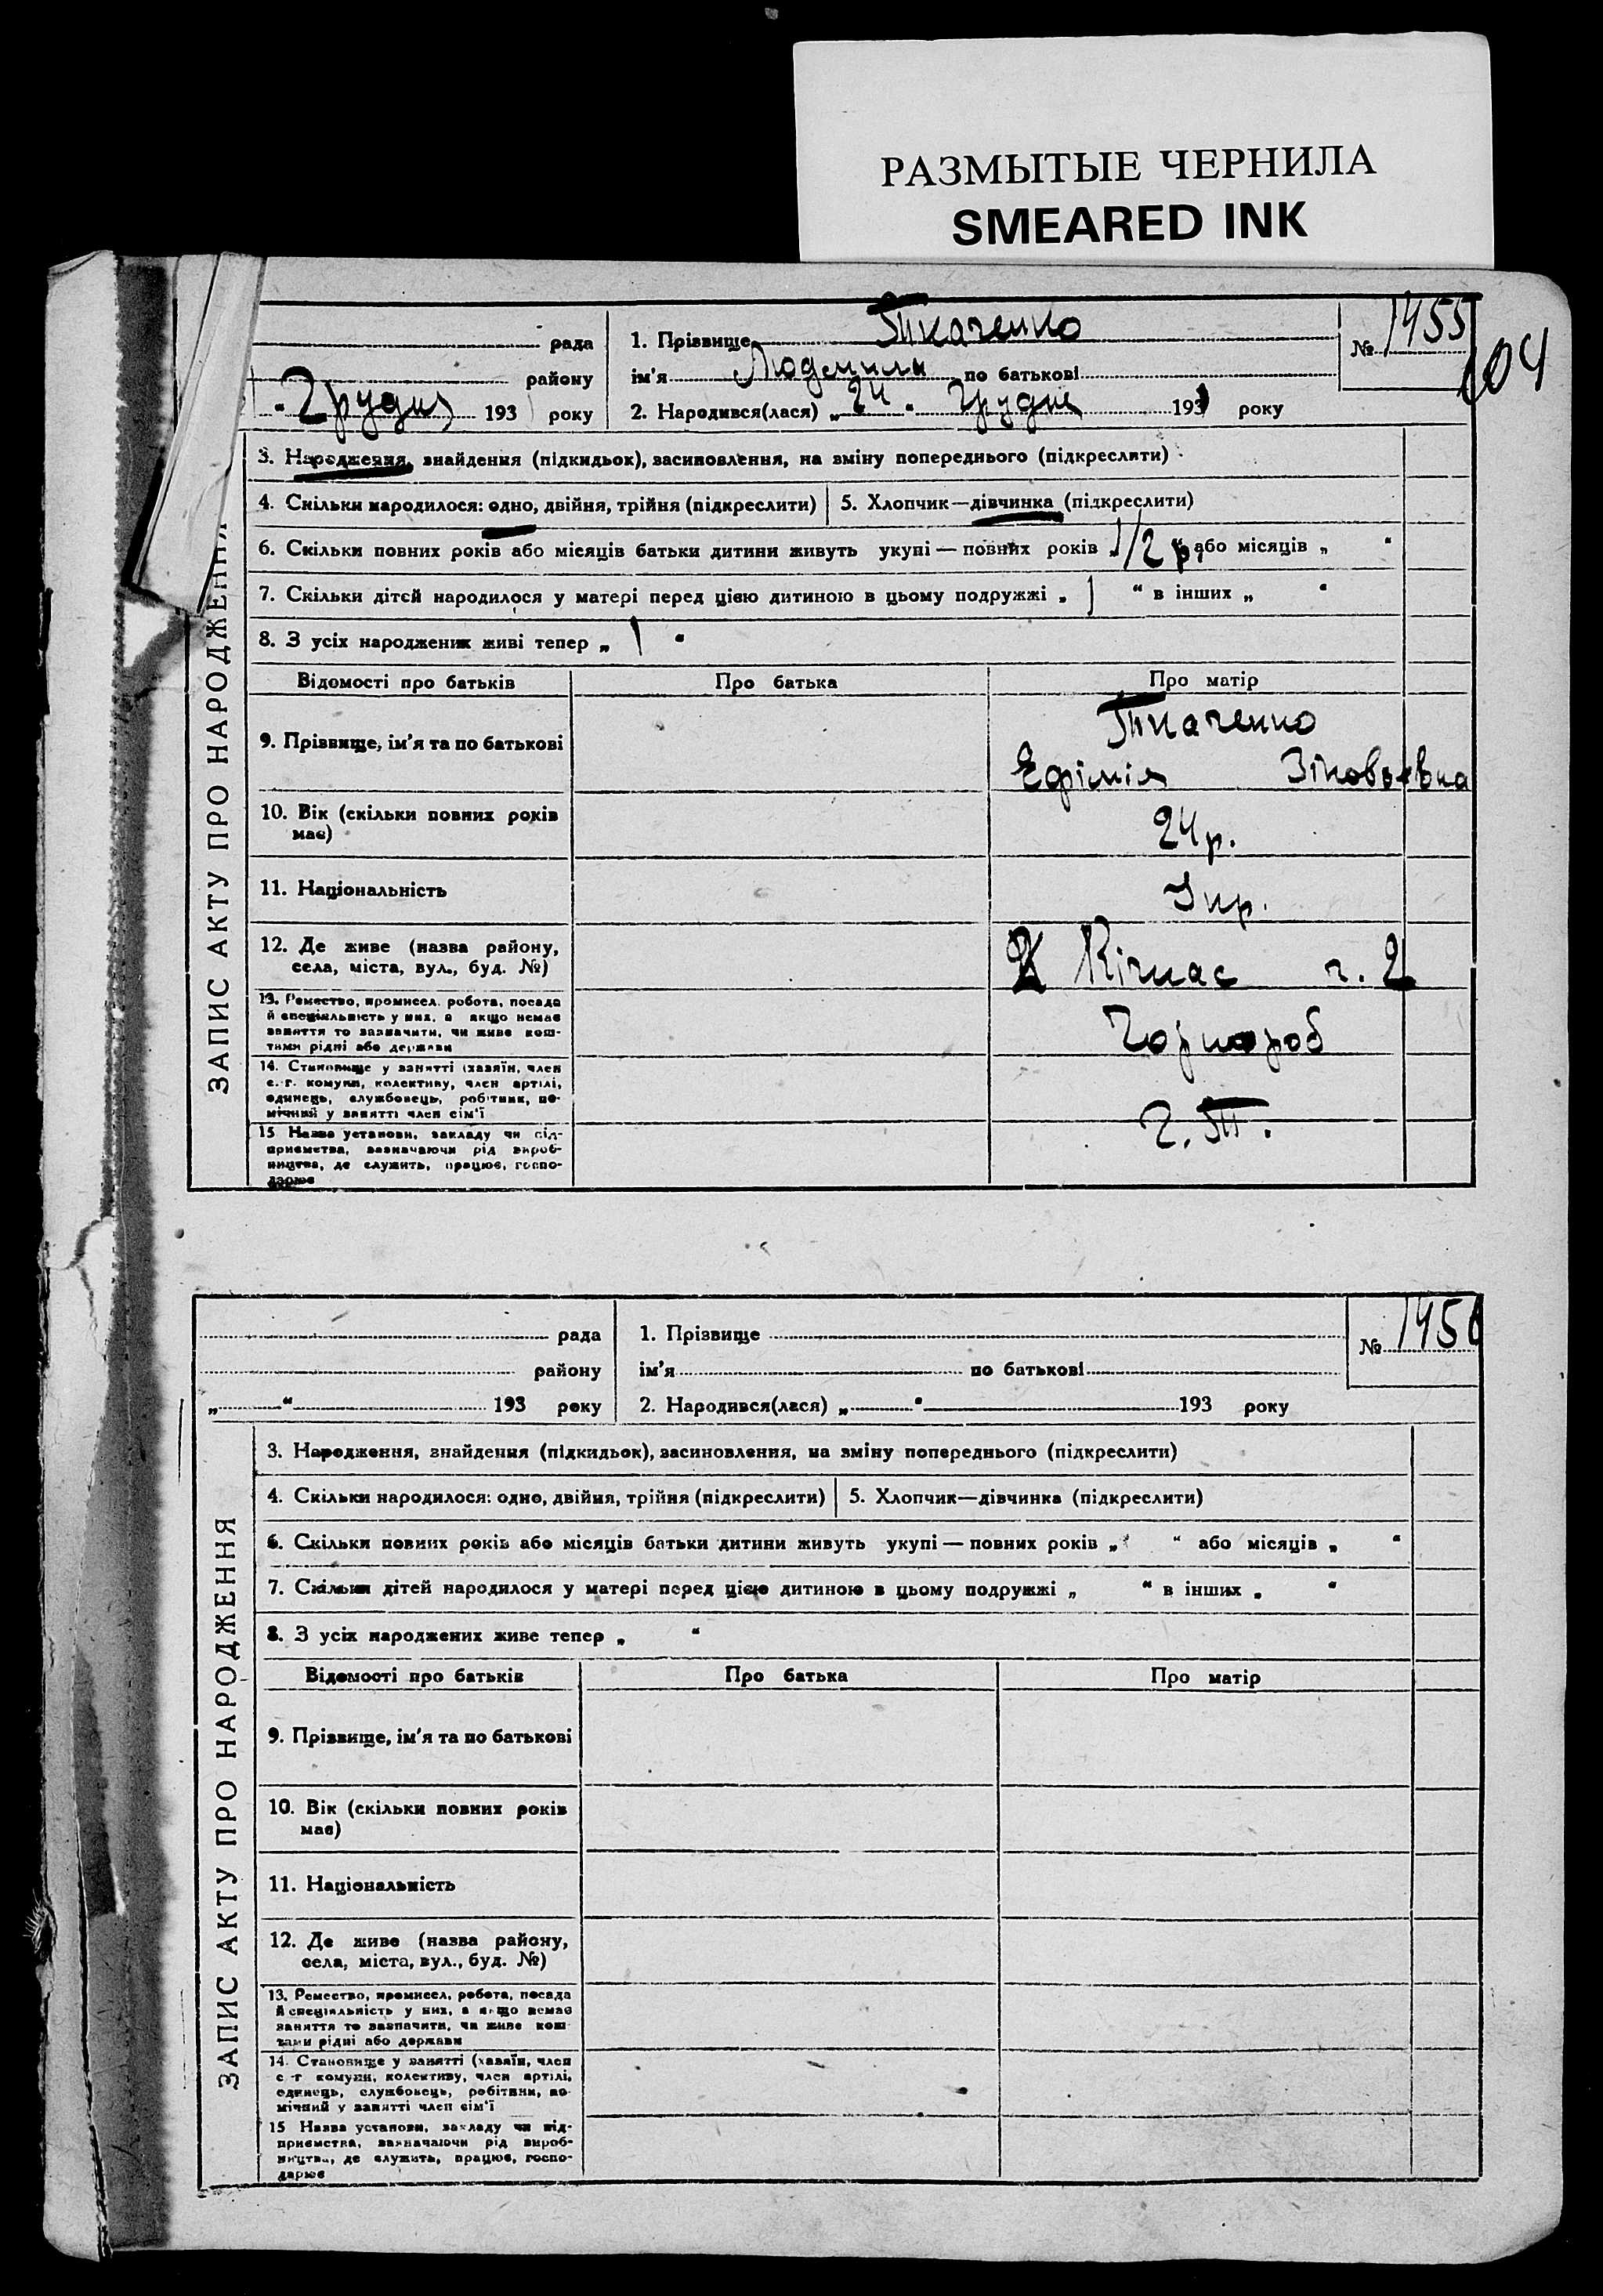 РАЗМЫТЫЕ ЧЕРНИЛА
SMEARED INK
рада
району
" Грудня 193 року
1. Прізвище Ткаченко
ім'я Людмила по батькові
2. Народився(лася) „ 24 " Грудня 193 року
№ 1455
104
ЗАПИС АКТУ ПРО НАРОДЖЕННЯ
3. Народження, знайдення (підкидьок), засиновлення, на зміну попереднього (підкреслити)
4. Скільки народилося: одно, двійня, трійня (підкреслити) 5. Хлопчик—дівчинка (підкреслити)
6. Скільки повних років або місяців батьки дитини живуть укупі — повних років „ 1/2 р. " або місяців „ "
7. Скільки дітей народилося у матері перед цією дитиною в цьому подружжі „ 1 " в інших „ "
8. З усіх народжених живі тепер „ 1 "
Відомості про батьків Про батька Про матір
9. Прізвище, ім'я та по батькові
Ткаченко
Ефімія Зіновьевна
10. Вік (скільки повних років
має)
24 р.
11. Національність
Укр.
12. Де живе (назва району,
села, міста, вул., буд. №)
Кічкас ч. 2
13. Ремество, промисел, робота, посада
й спеціяльність у них, а якщо немає
заняття то зазначити, чи живе кош-
тами рідні або держави
Чорнороб
14. Становище у занятті (хазяїн, член
с.-г. комуни, колективу, член артілі,
одинець, службовець, робітник, по-
мічний у занятті член сім'ї
15 Назва установи, закладу чи під-
приємства, зазначаючи рід вироб-
ництва, де служить, працює, госпо-
дарює
рада
району
„ " 193 року
1. Прізвище
ім'я по батькові
2. Народився(лася) „ " 193 року
№ 1456
ЗАПИС АКТУ ПРО НАРОДЖЕННЯ
3. Народження, знайдення (підкидьок), засиновлення, на зміну попереднього (підкреслити)
4. Скільки народилося: одно, двійня, трійня (підкреслити) 5. Хлопчик—дівчинка (підкреслити)
6. Скільки повних років або місяців батьки дитини живуть укупі — повних років „ " або місяців „ "
7. Скільки дітей народилося у матері перед цією дитиною в цьому подружжі „ " в інших „ "
8. З усіх народжених живе тепер „ "
Відомості про батьків Про батька Про матір
9. Прізвище, ім'я та по батькові
10. Вік (скільки повних років
має)
11. Національність
12. Де живе (назва району,
села, міста, вул., буд. №)
13. Ремество, промисел, робота, посада
й спеціяльність у них, а якщо немає
заняття то зазначити, чи живе кош-
тами рідні або держави
14. Становище у занятті (хазяїн, член
с.-г. комуни, колективу, член артілі,
одинець, службовець, робітник, по-
мічний у занятті член сім'ї
15 Назва установи, закладу чи під-
приємства, зазначаючи рід вироб-
ництва, де служить, працює, госпо-
дарює